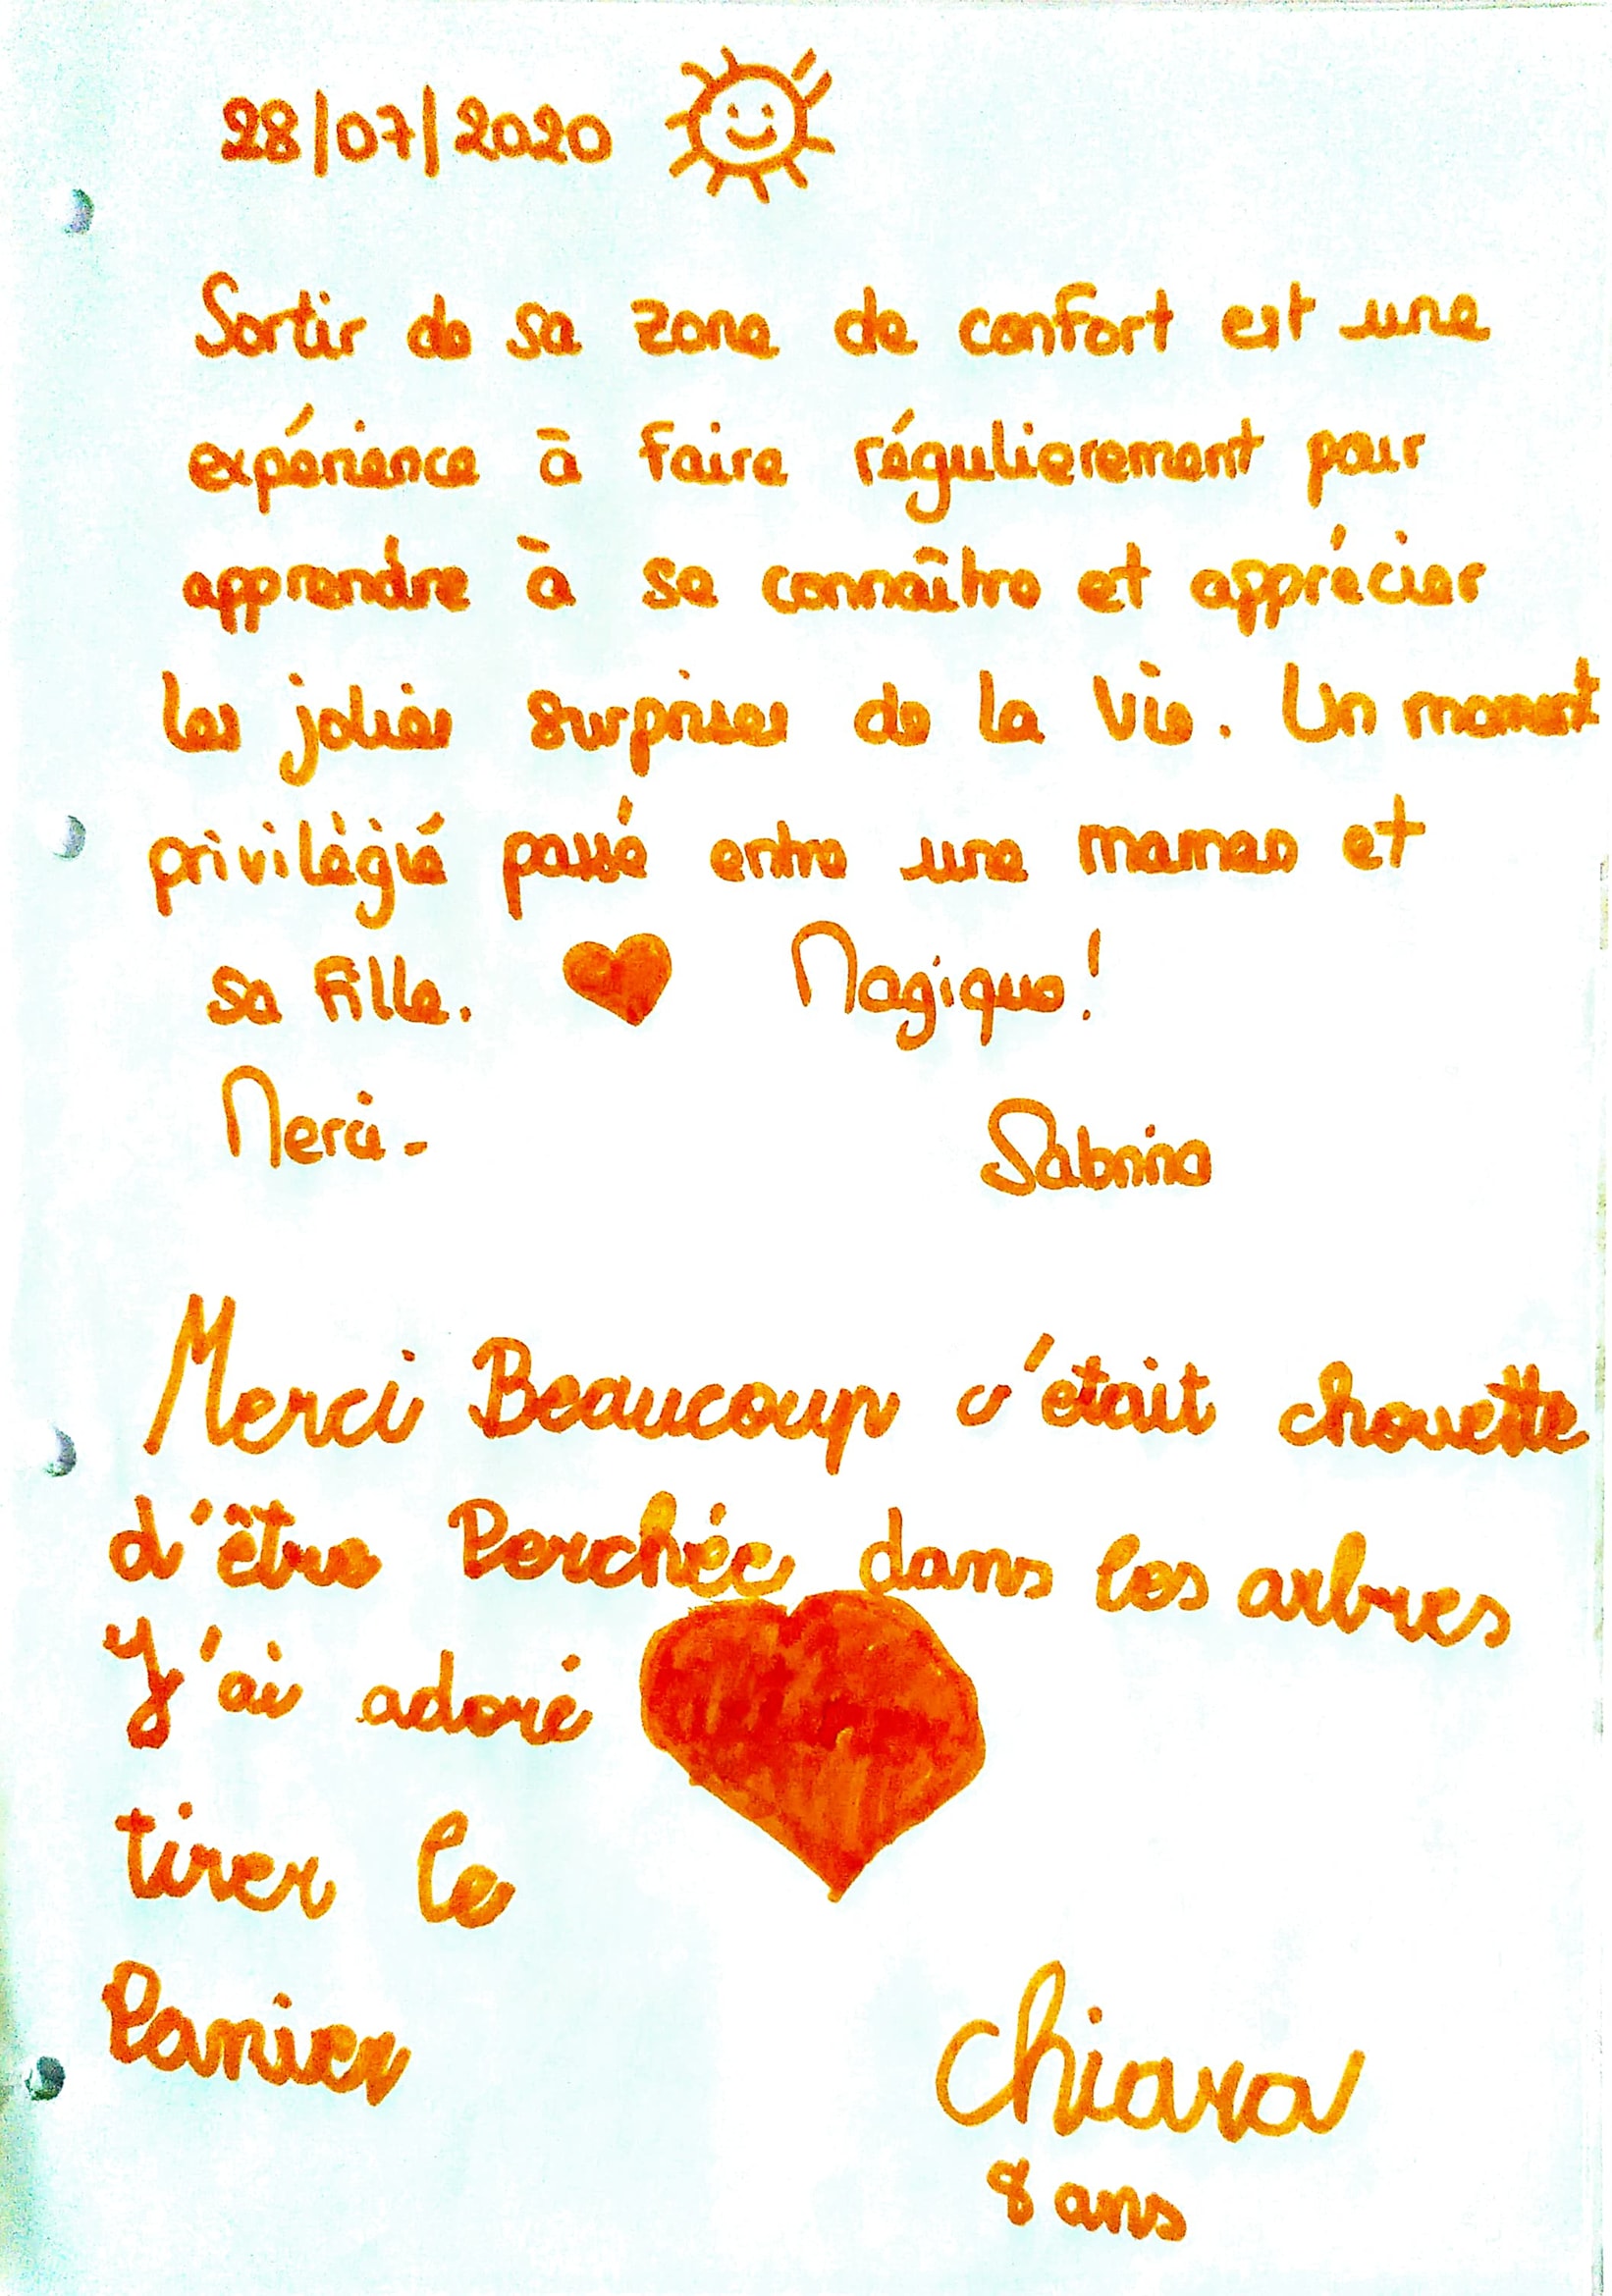 28/07/2020
Sortir de sa zone de confort est une
expérience à faire régulierement pour
apprendre à se connaître et apprécier
les jolies surprises de la vie. Un moment
privilègié passé entre une maman et
sa fille. Magique!
Merci. Sabrina
Merci Beaucoup c'était chouette
d'être Perchée dans les arbres
J'ai adoré
tirer le
Panier
Chiara
8 ans